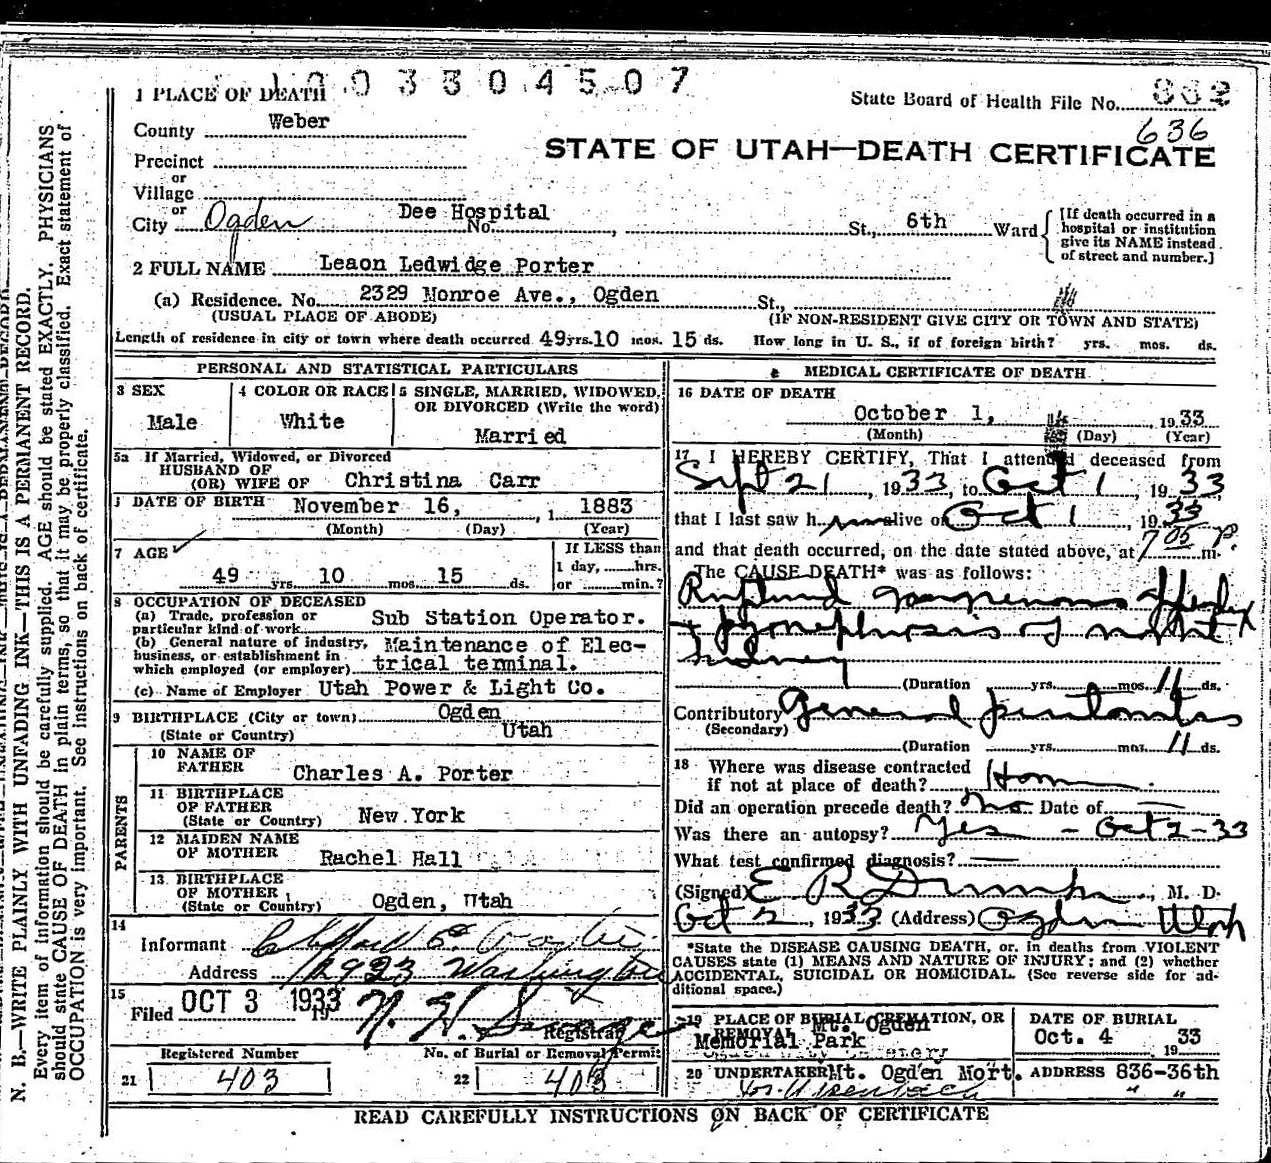 1 PLACE OF DEATH 1003304507
State Board of Health File No. 862
County Weber
636
STATE OF UTAH—DEATH CERTIFICATE
Precinct
or
Village
or
City Ogden Dee Hospital No. , St., 6th Ward
[If death occurred in a
hospital or institution
give its NAME instead
of street and number.]
2 FULL NAME Leaon Ledwidge Porter
(a) Residence. No. 2329 Monroe Ave., Ogden St.,
(USUAL PLACE OF ABODE) (IF NON-RESIDENT GIVE CITY OR TOWN AND STATE)
Length of residence in city or town where death occurred 49 yrs. 10 mos. 15 ds. How long in U. S., if of foreign birth? yrs. mos. ds.
PERSONAL AND STATISTICAL PARTICULARS
3 SEX
Male
4 COLOR OR RACE
White
5 SINGLE, MARRIED, WIDOWED,
OR DIVORCED (Write the word)
Married
5a If Married, Widowed, or Divorced
HUSBAND OF
(OR) WIFE OF Christina Carr
DATE OF BIRTH November 16, , 1 1883
(Month) (Day) (Year)
7 AGE
49 yrs. 10 mos. 15 ds.
If LESS than
1 day, hrs.
or min.?
8 OCCUPATION OF DECEASED
(a) Trade, profession or
particular kind of work Sub Station Operator.
(b) General nature of industry,
business, or establishment in
which employed (or employer) Maintenance of Elec-
trical terminal.
(c) Name of Employer Utah Power & Light Co.
9 BIRTHPLACE (City or town) Ogden
(State or Country) Utah
PARENTS
10 NAME OF
FATHER Charles A. Porter
11 BIRTHPLACE
OF FATHER
(State or Country) New York
12 MAIDEN NAME
OF MOTHER Rachel Hall
13 BIRTHPLACE
OF MOTHER
(State or Country) Ogden, Utah
14
Informant
Address 2923 Washington
15
Filed OCT 3 1933 19
Registrar
Registered Number
21 403
No. of Burial or Removal Permit
22 403
MEDICAL CERTIFICATE OF DEATH
16 DATE OF DEATH
October 1, 1933
(Month) (Day) (Year)
17 I HEREBY CERTIFY, That I attended deceased from
Sept 21, 1933, to Oct 1, 1933
that I last saw h im alive on Oct 1, 1933
and that death occurred, on the date stated above, at 7 05 P. m.
The CAUSE DEATH* was as follows:
Ruptured gangrenous
+ pyonephrosis of right
kidney
(Duration yrs. mos. 11 ds.
Contributory General peritonitis
(Secondary)
(Duration yrs. mos. 11 ds.
18 Where was disease contracted
if not at place of death? Home
Did an operation precede death? no Date of —
Was there an autopsy? Yes - Oct 2-33
What test confirmed diagnosis? —
(Signed) E R , M. D.
Oct 2, 1933 (Address) Ogden Utah
*State the DISEASE CAUSING DEATH, or, in deaths from VIOLENT
CAUSES state (1) MEANS AND NATURE OF INJURY; and (2) whether
ACCIDENTAL, SUICIDAL OR HOMICIDAL. (See reverse side for ad-
ditional space.)
19 PLACE OF BURIAL, CREMATION, OR
REMOVAL Mt. Ogden
Memorial Park
DATE OF BURIAL
Oct. 4 1933
20 UNDERTAKER Mt. Ogden Mort. ADDRESS 836-36th
" "
READ CAREFULLY INSTRUCTIONS ON BACK OF CERTIFICATE
N. B.—WRITE PLAINLY WITH UNFADING INK—THIS IS A PERMANENT RECORD.
Every item of information should be carefully supplied. AGE should be stated EXACTLY. PHYSICIANS
should state CAUSE OF DEATH in plain terms, so that it may be properly classified. Exact statement of
OCCUPATION is very important. See instructions on back of certificate.